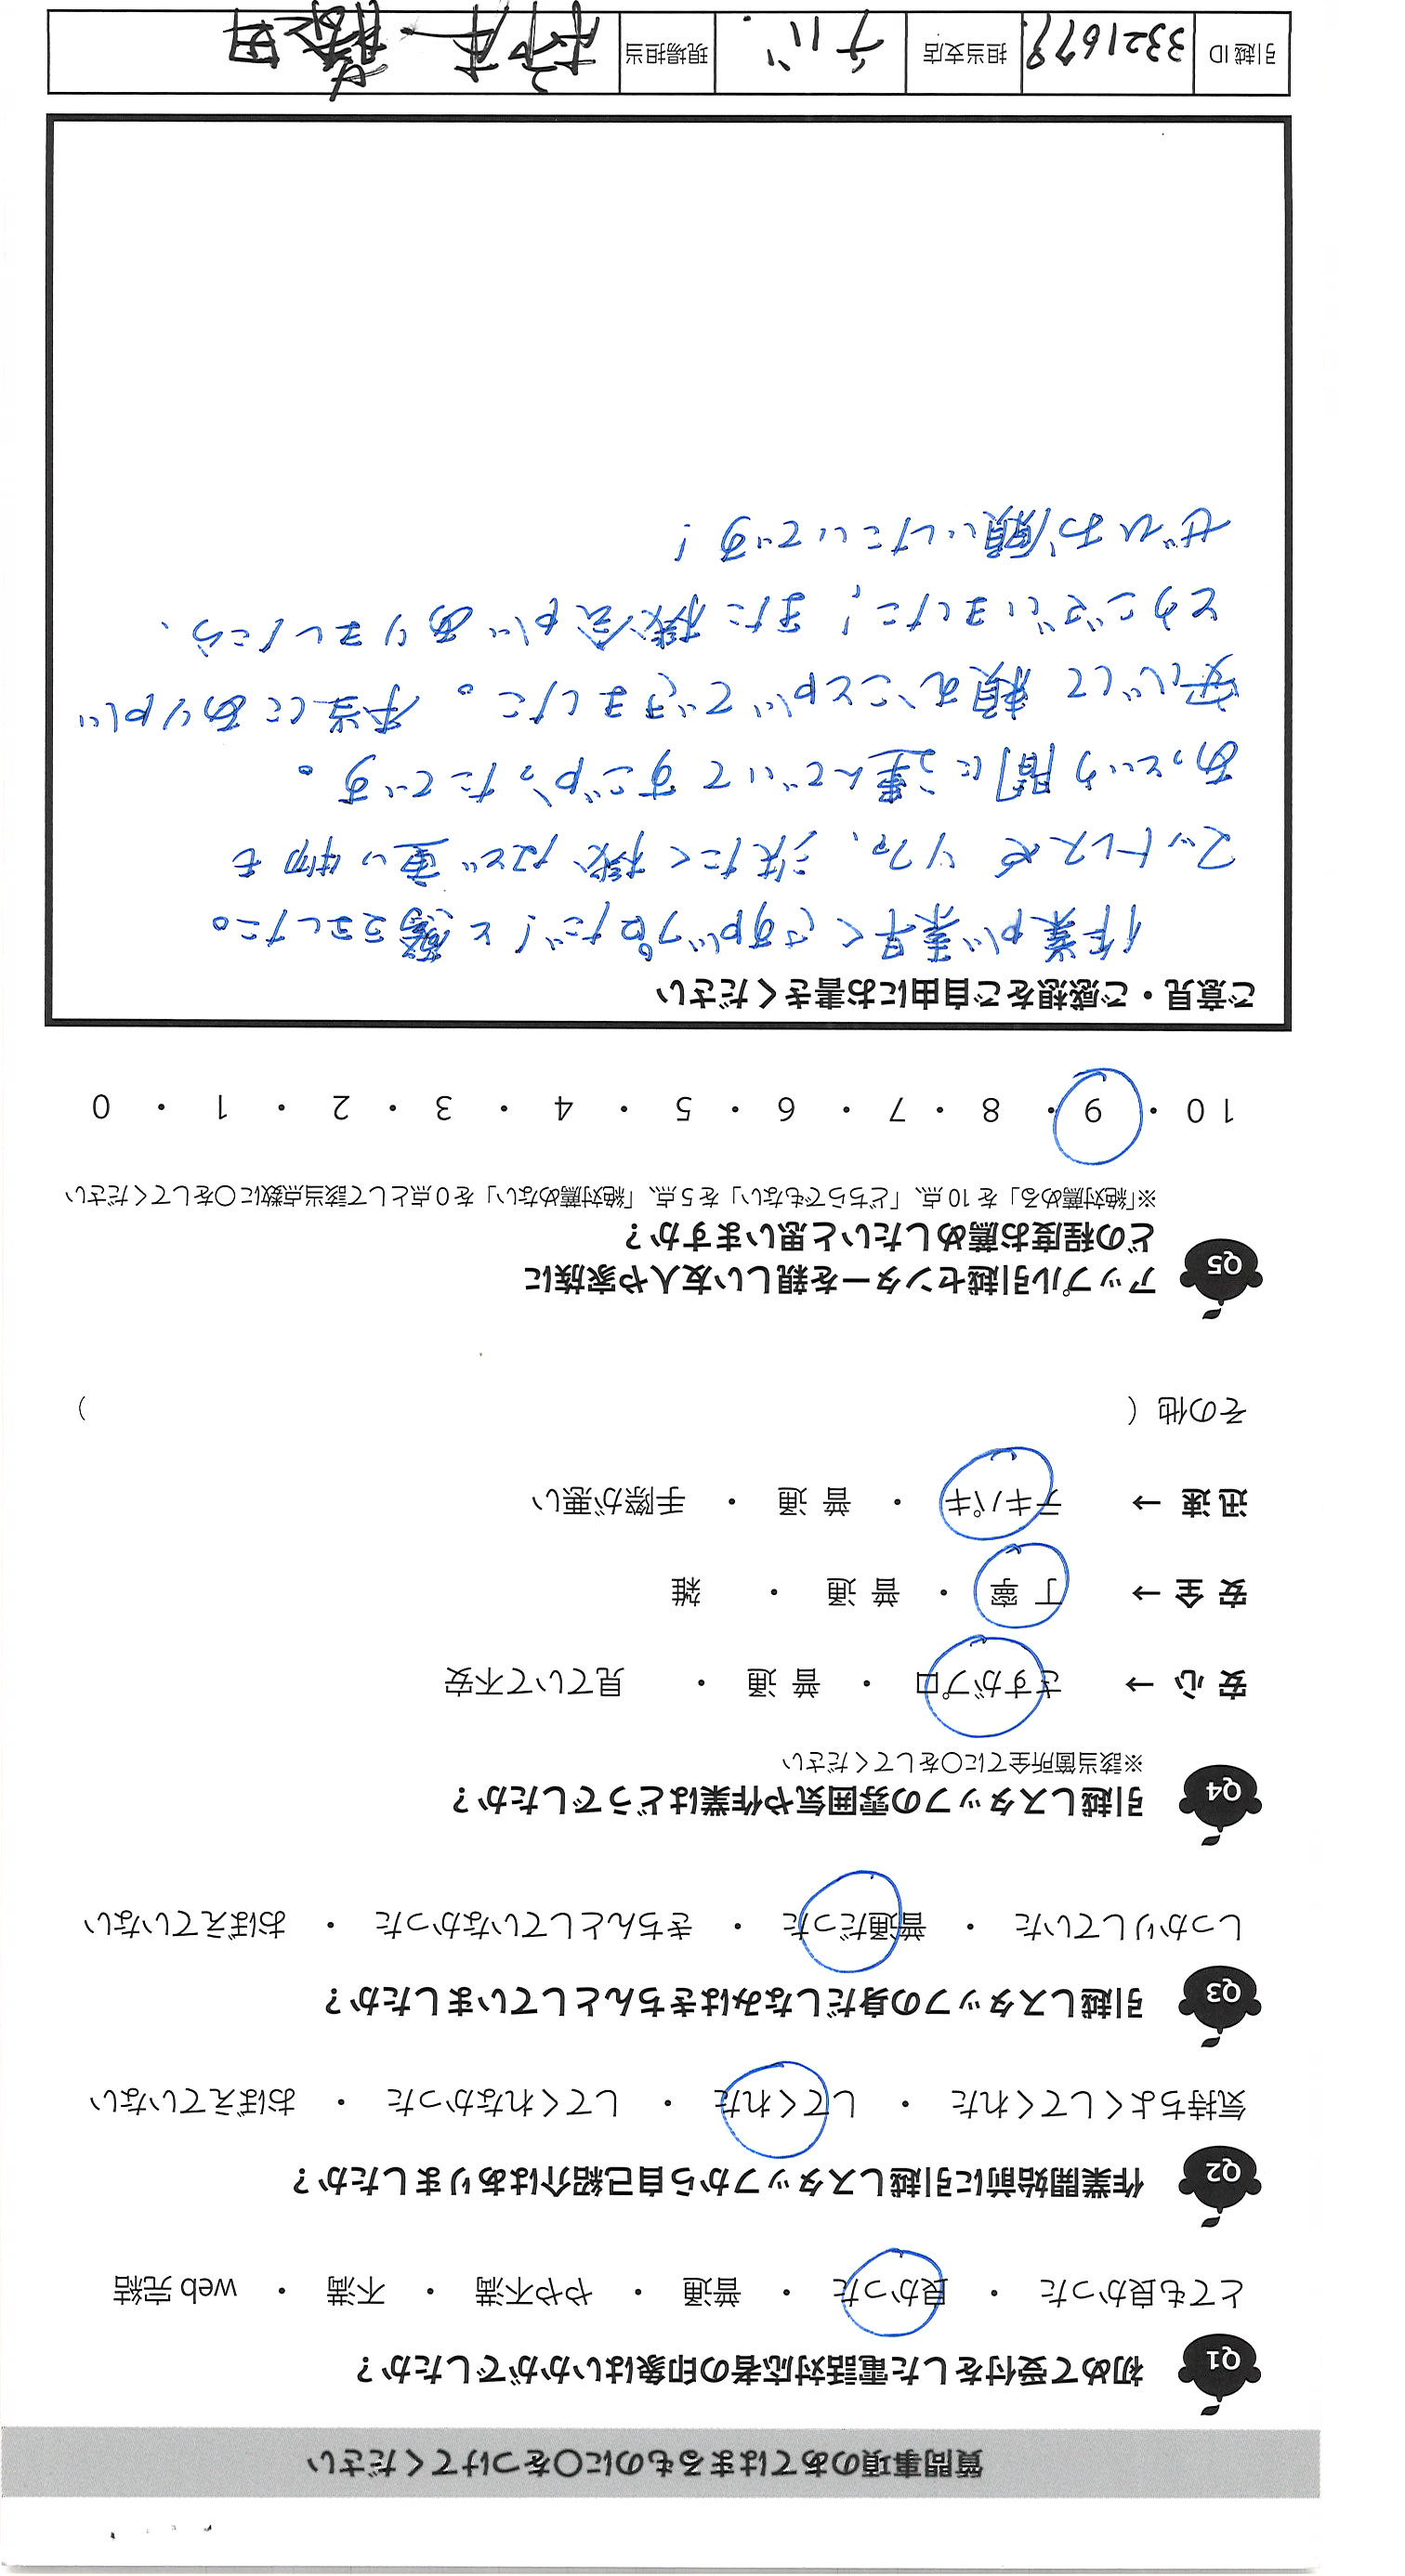 質問事項のあてはまるものに〇をつけてください
Q1 初めて受付をした電話対応者の印象はいかがでしたか？
とても良かった ・ 良かった ・ 普通 ・ やや不満 ・ 不満 ・ web 完結
Q2 作業開始前に引越しスタッフから自己紹介はありましたか？
気持ちよくしてくれた ・ してくれた ・ してくれなかった ・ おぼえていない
Q3 引越しスタッフの身だしなみはきちんとしていましたか？
しっかりしていた ・ 普通だった ・ きちんとしていなかった ・ おぼえていない
Q4 引越しスタッフの雰囲気や作業はどうでしたか？
※該当箇所全てに〇をしてください
安 心 → さすがプロ ・ 普 通 ・ 見ていて不安
安 全 → 丁 寧 ・ 普 通 ・ 雑
迅 速 → テキパキ ・ 普 通 ・ 手際が悪い
その他（ ）
Q5 アップル引越センターを親しい友人や家族に
どの程度お薦めしたいと思いますか？
※「絶対薦める」を 10 点、「どちらでもない」を 5 点、「絶対薦めない」を 0 点として該当点数に〇をしてください
10 ・ 9 ・ 8 ・ 7 ・ 6 ・ 5 ・ 4 ・ 3 ・ 2 ・ 1 ・ 0
ご意見・ご感想をご自由にお書きください
作業が素早くさすがプロだ！と驚きました。
マットレスやソファ、洗たく機など重い物も
あっという間に運んでいてすごかったです。
安心して頼むことができました。本当にありがい
とうございました！また機会がありましたら、
ぜひお願いしたいです！
引越 ID 3321679 担当支店 チバ 現場担当